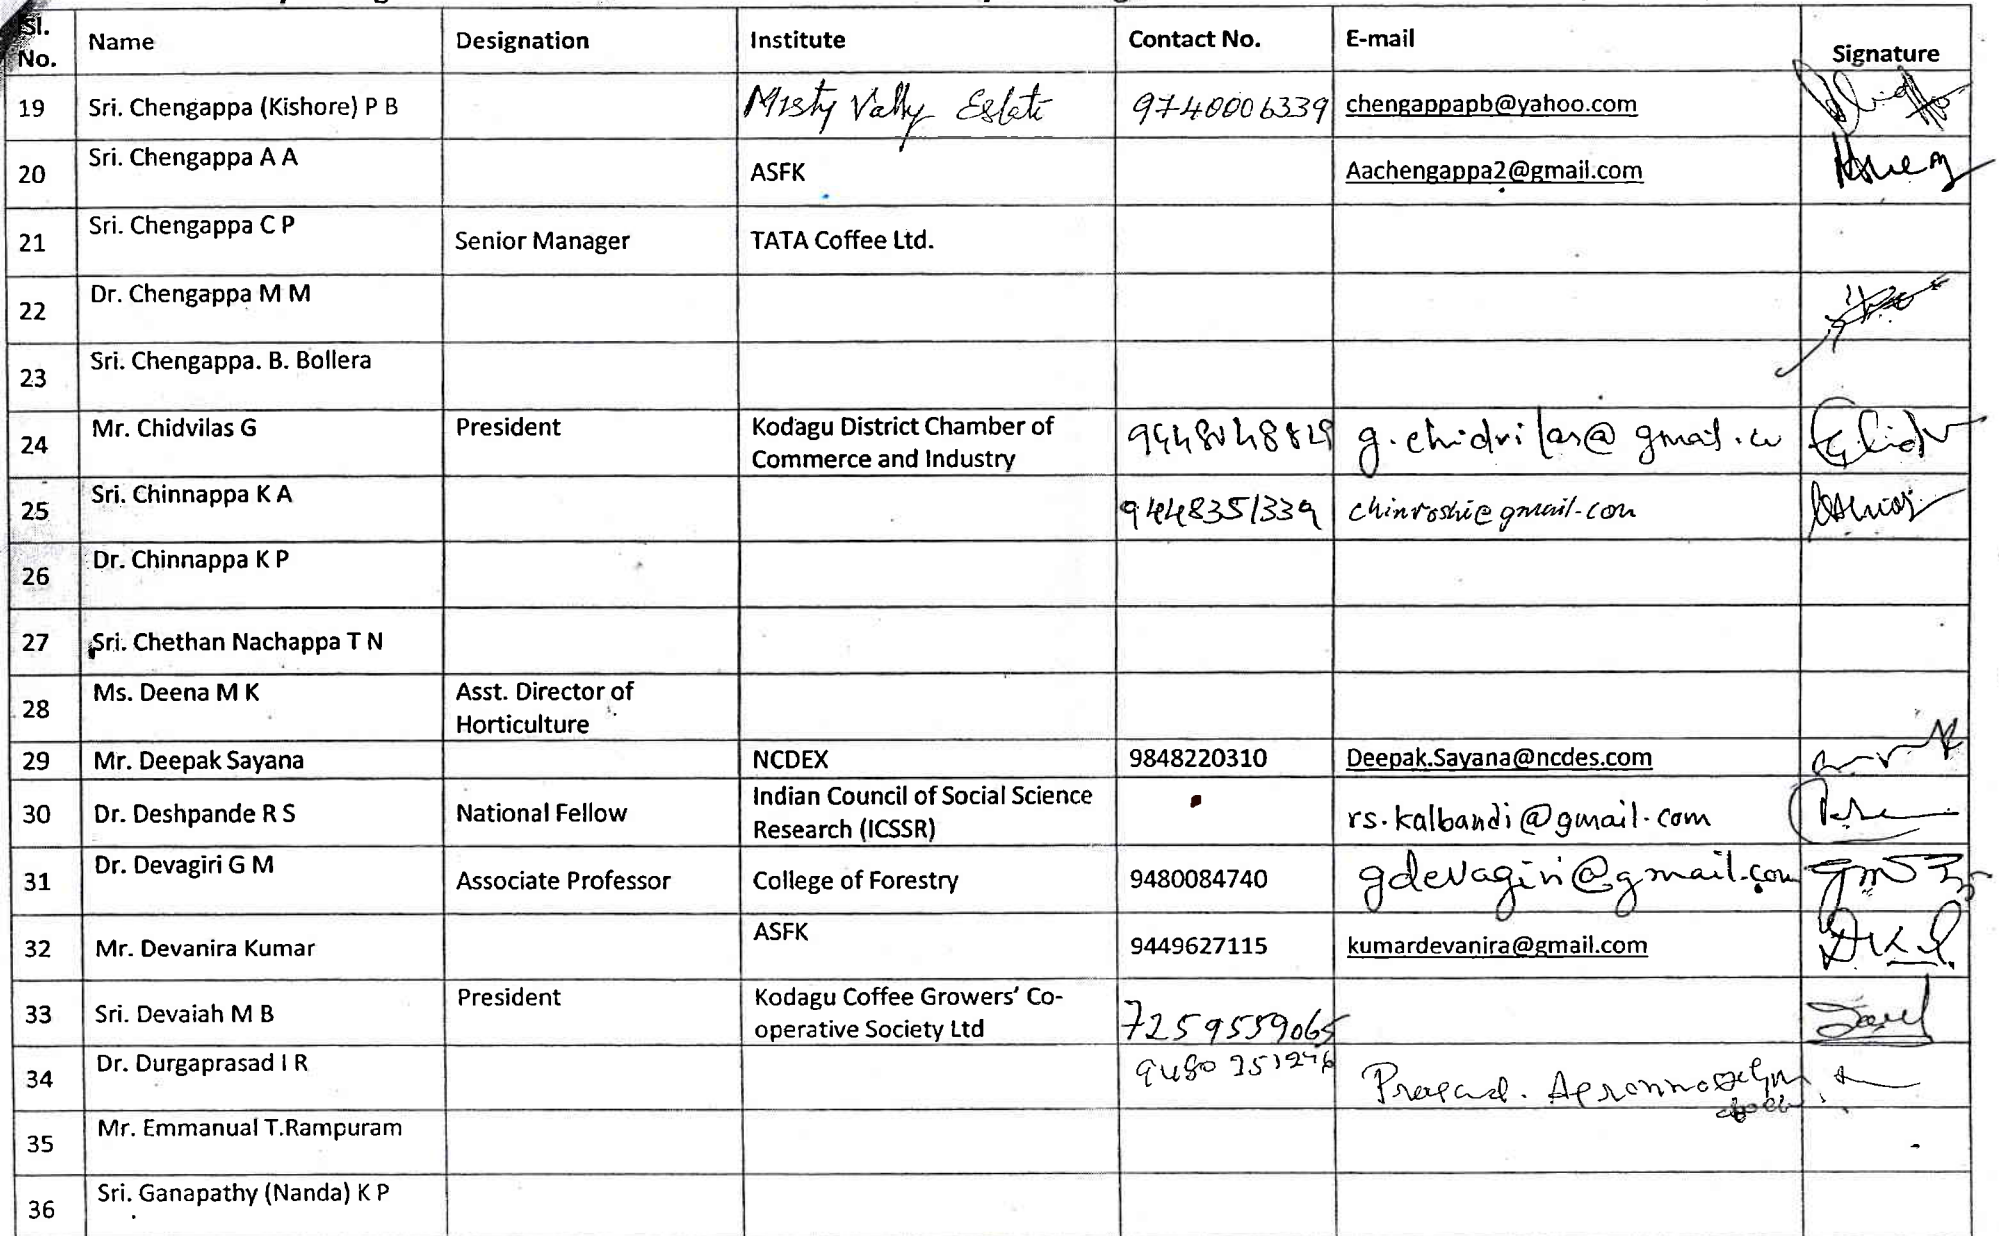 Sl. No. Name Designation Institute Contact No. E-mail Signature
19 Sri. Chengappa (Kishore) P B Misty Vally Estate 9740006339 chengappapb@yahoo.com
20 Sri. Chengappa A A ASFK Aachengappa2@gmail.com
21 Sri. Chengappa C P Senior Manager TATA Coffee Ltd.
22 Dr. Chengappa M M
23 Sri. Chengappa. B. Bollera
24 Mr. Chidvilas G President Kodagu District Chamber of
Commerce and Industry
25 Sri. Chinnappa K A 9448351339
26 Dr. Chinnappa K P
27 Sri. Chethan Nachappa T N
28 Ms. Deena M K Asst. Director of
Horticulture
29 Mr. Deepak Sayana NCDEX 9848220310 Deepak.Sayana@ncdes.com
30 Dr. Deshpande R S National Fellow Indian Council of Social Science
Research (ICSSR) rs.kalbandi@gmail.com
31 Dr. Devagiri G M Associate Professor College of Forestry 9480084740 gdevagiri@gmail.com
32 Mr. Devanira Kumar ASFK 9449627115 kumardevanira@gmail.com
33 Sri. Devaiah M B President Kodagu Coffee Growers’ Co-
operative Society Ltd 7259559065
34 Dr. Durgaprasad I R
35 Mr. Emmanual T.Rampuram
36 Sri. Ganapathy (Nanda) K P